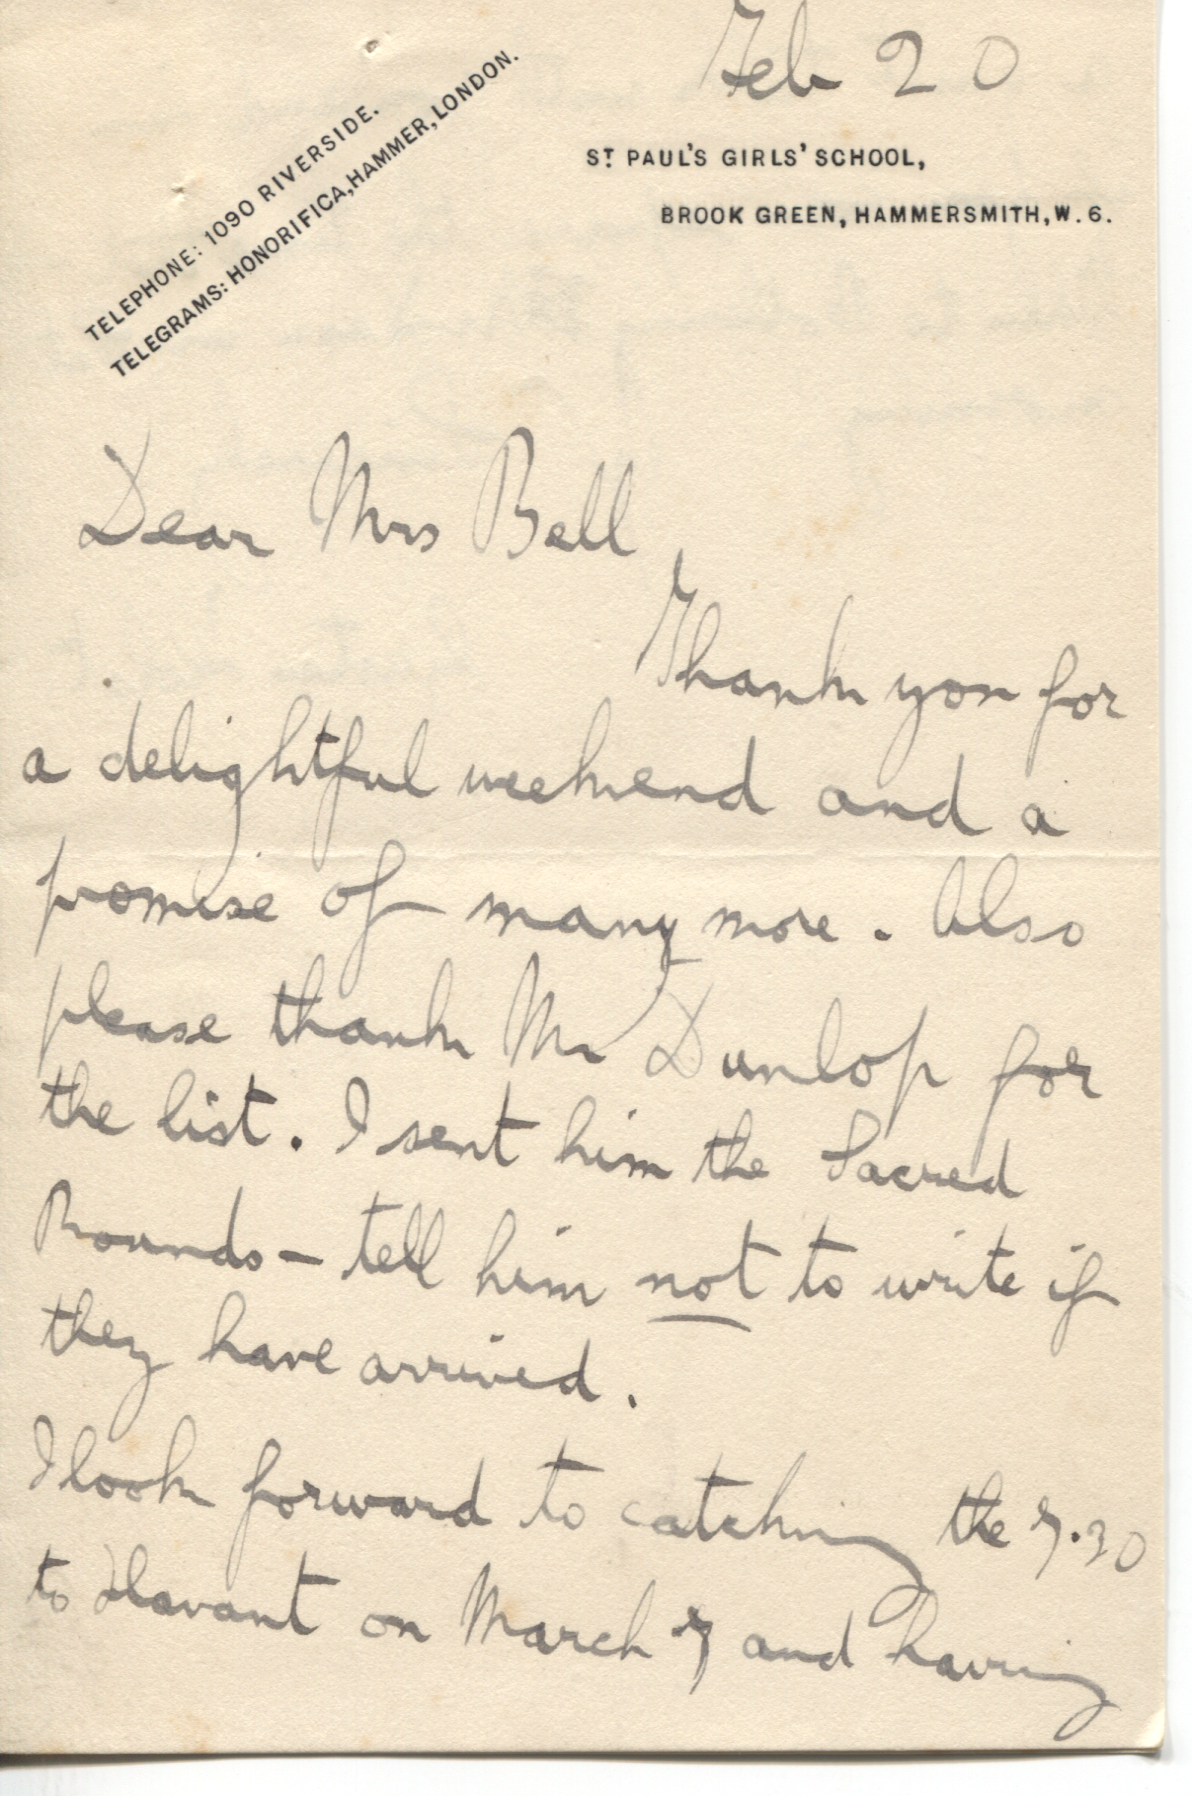 Feb 20
TELEPHONE: 1090 RIVERSIDE.
TELEGRAMS: HONORIFICA, HAMMER, LONDON.
ST PAUL'S GIRLS' SCHOOL,
BROOK GREEN, HAMMERSMITH, W. 6.
Dear Mrs Bell
Thank you for
a delightful weekend and a
promise of many more. Also
please thank Mr Dunlop for
the list. I sent him the Sacred
Rounds - tell him not to write if
they have arrived.
I look forward to catching the 7.30
to Havant on March 7 and having